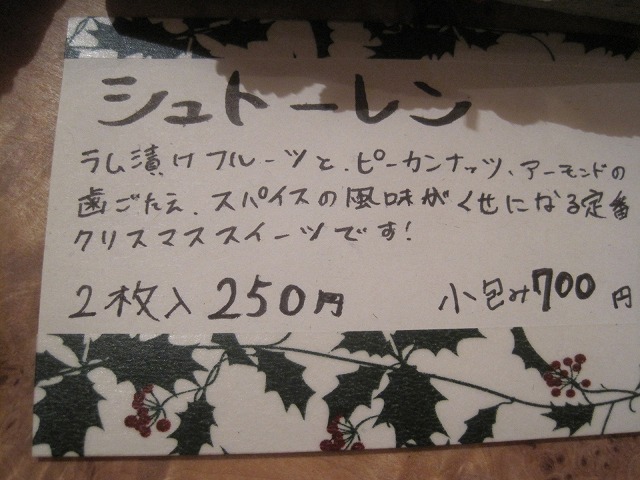 シュトーレン
ラム漬けフルーツと、ピーカンナッツ、アーモンドの
歯ごたえ、スパイスの風味がくせになる定番
クリスマススイーツです!
2枚入 250円 小包み700円